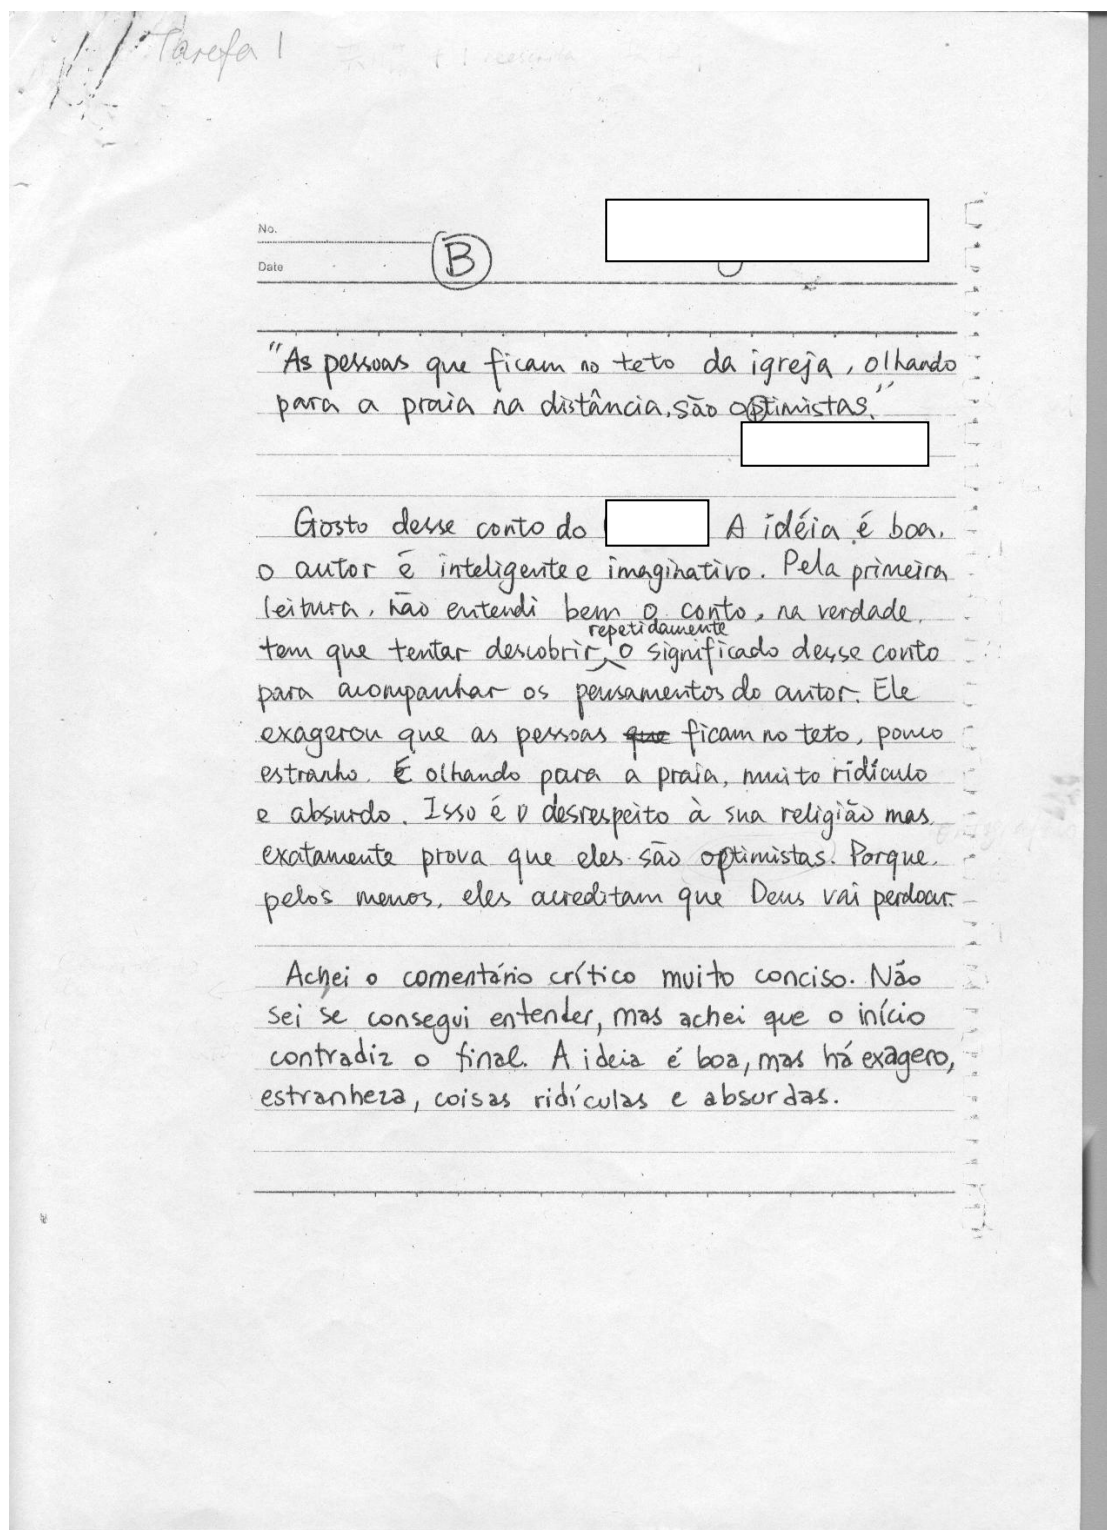 Tarefa 1
No.
Date
B
"As pessoas que ficam no teto da igreja, olhando
para a praia na distância, são optimistas."
Gosto desse conto do A idéia é boa,
o autor é inteligente e imaginativo. Pela primeira
leitura, não entendi bem o conto, na verdade,
tem que tentar descobrir repetidamente o significado desse conto
para acompanhar os pensamentos do autor. Ele
exagerou que as pessoas que ficam no teto, pouco
estranho. E olhando para a praia, muito ridículo
e absurdo. Isso é o desrespeito à sua religião mas,
exatamente prova que eles são optimistas. Porque,
pelos menos, eles acreditam que Deus vai perdoar.
Achei o comentário crítico muito conciso. Não
sei se consegui entender, mas achei que o início
contradiz o final. A ideia é boa, mas há exagero,
estranheza, coisas ridículas e absurdas.